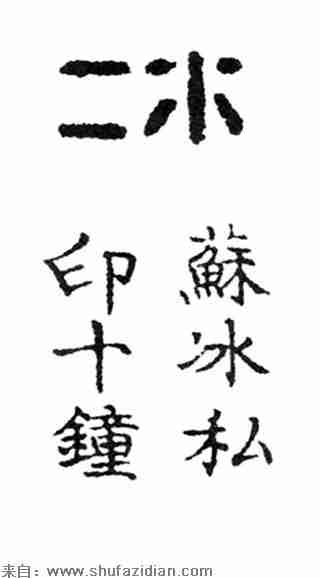 冰
蘇冰私
印十鐘
来自：www.shufazidian.com